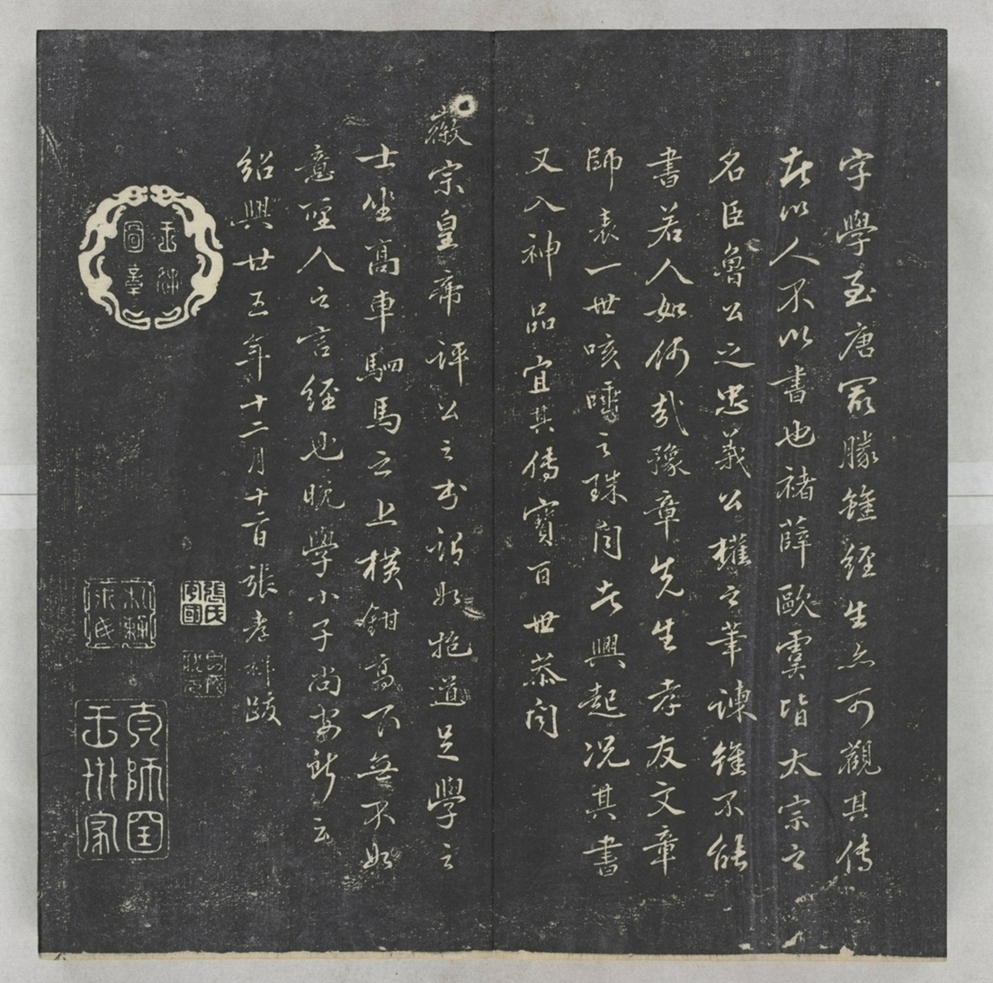 字學至唐最勝雖經生亦可觀其傳
者以人不以書也褚薛歐虞皆太宗之
名臣魯公之忠義公權之筆諫雖不能
書若人如何哉豫章先生孝友文章
師表一世咳唾之珠聞者興起況其書
又入神品宜其傳寶百世恭聞
徽宗皇帝評公之書謂如抱道足學之
士坐高車駟馬之上橫鉗高下無不如
意聖人之言經也晚學小子尚安所云
紹興廿五年十二月十一日張孝祥跋
張氏
安國